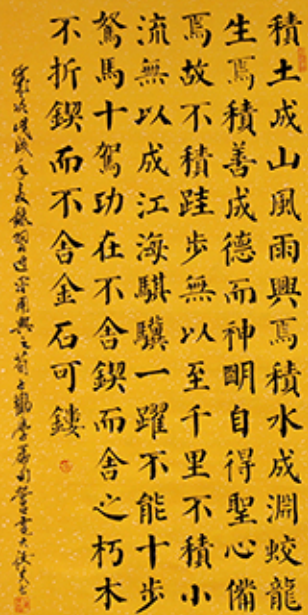 積土成山風雨興焉積水成淵蛟龍
生焉積善成德而神明自得聖心備
焉故不積跬步無以至千里不積小
流無以成江海騏驥一躍不能十步
駑馬十駕功在不舍鍥而舍之朽木
不折鍥而不舍金石可鏤